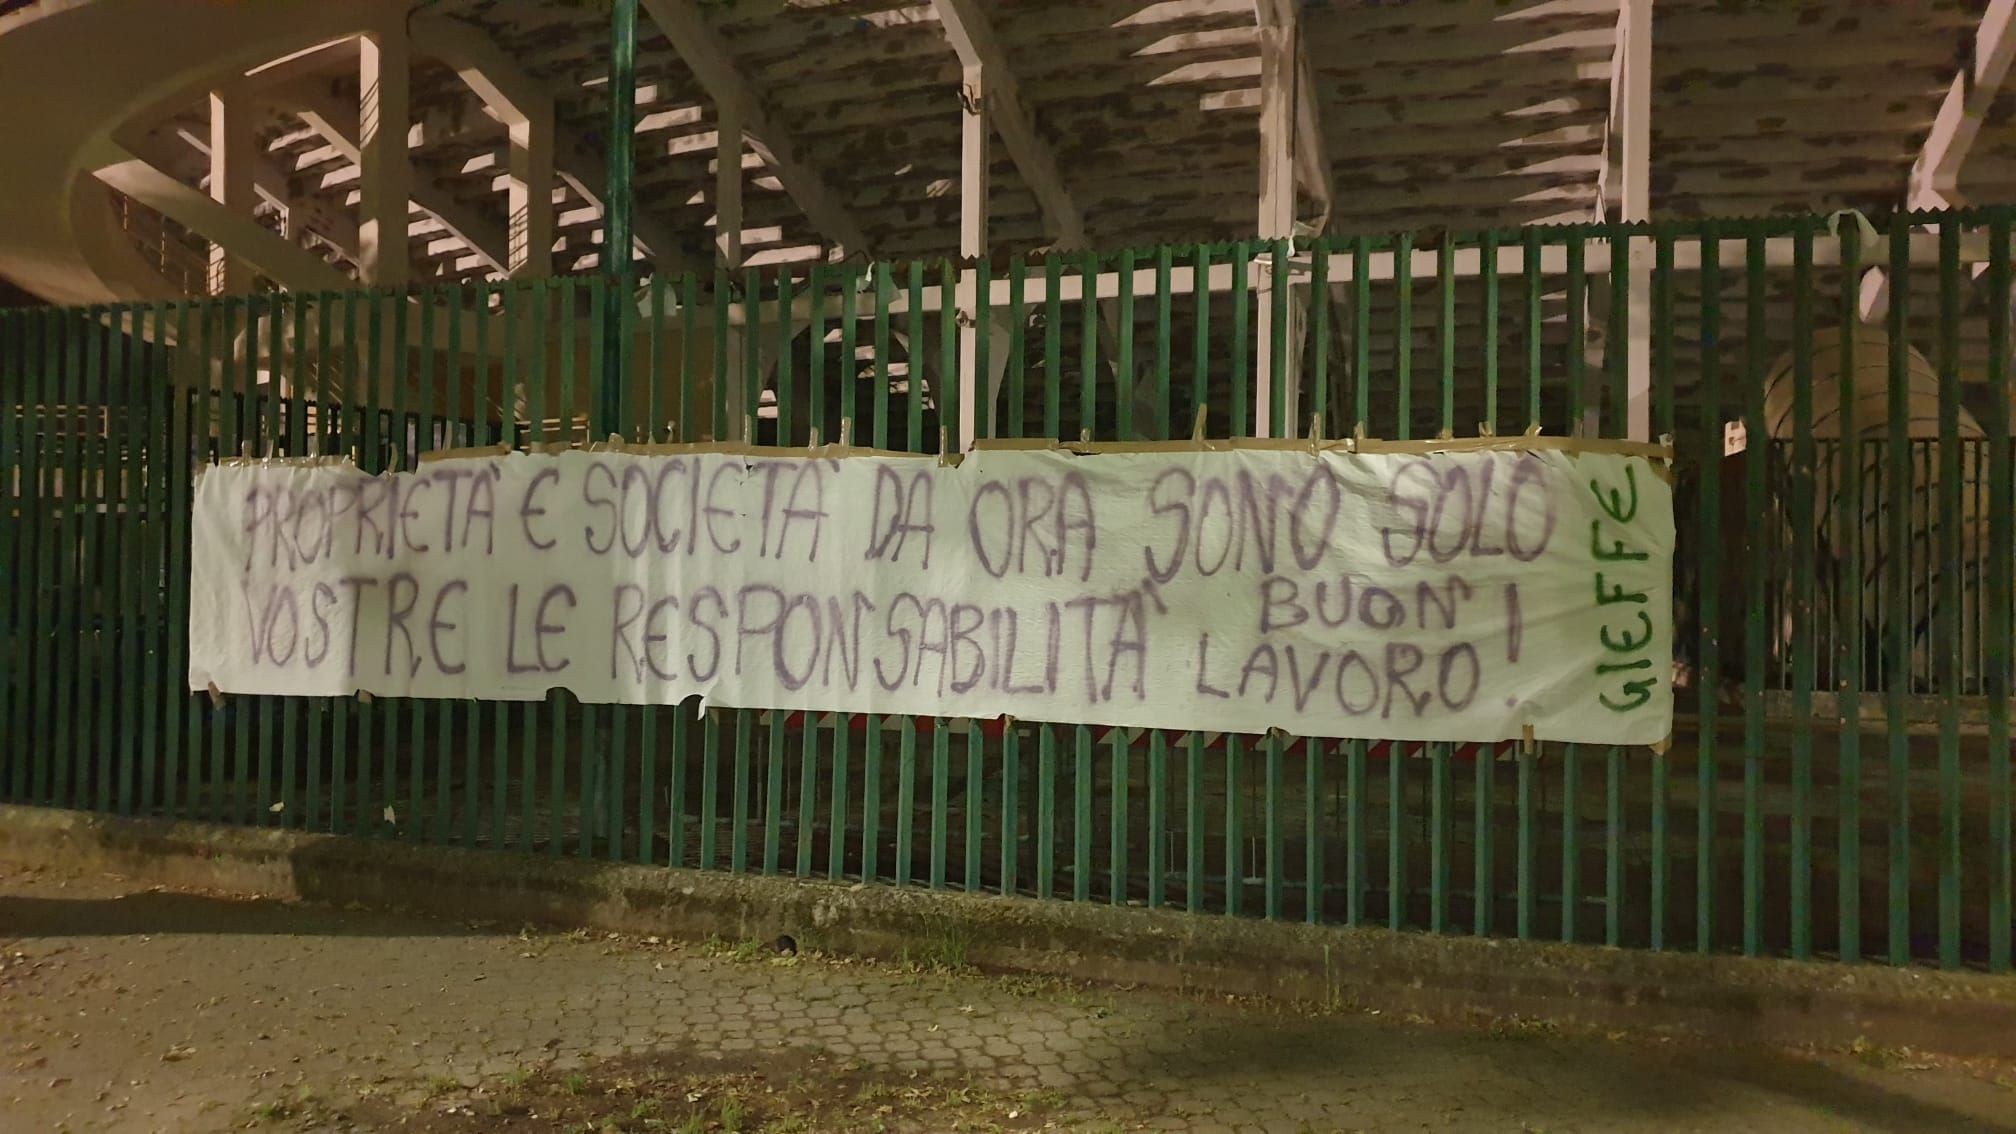 PROPRIETÀ E SOCIETÀ DA ORA SONO SOLO
VOSTRE LE RESPONSABILITÀ BUON
LAVORO!
GIEFFE